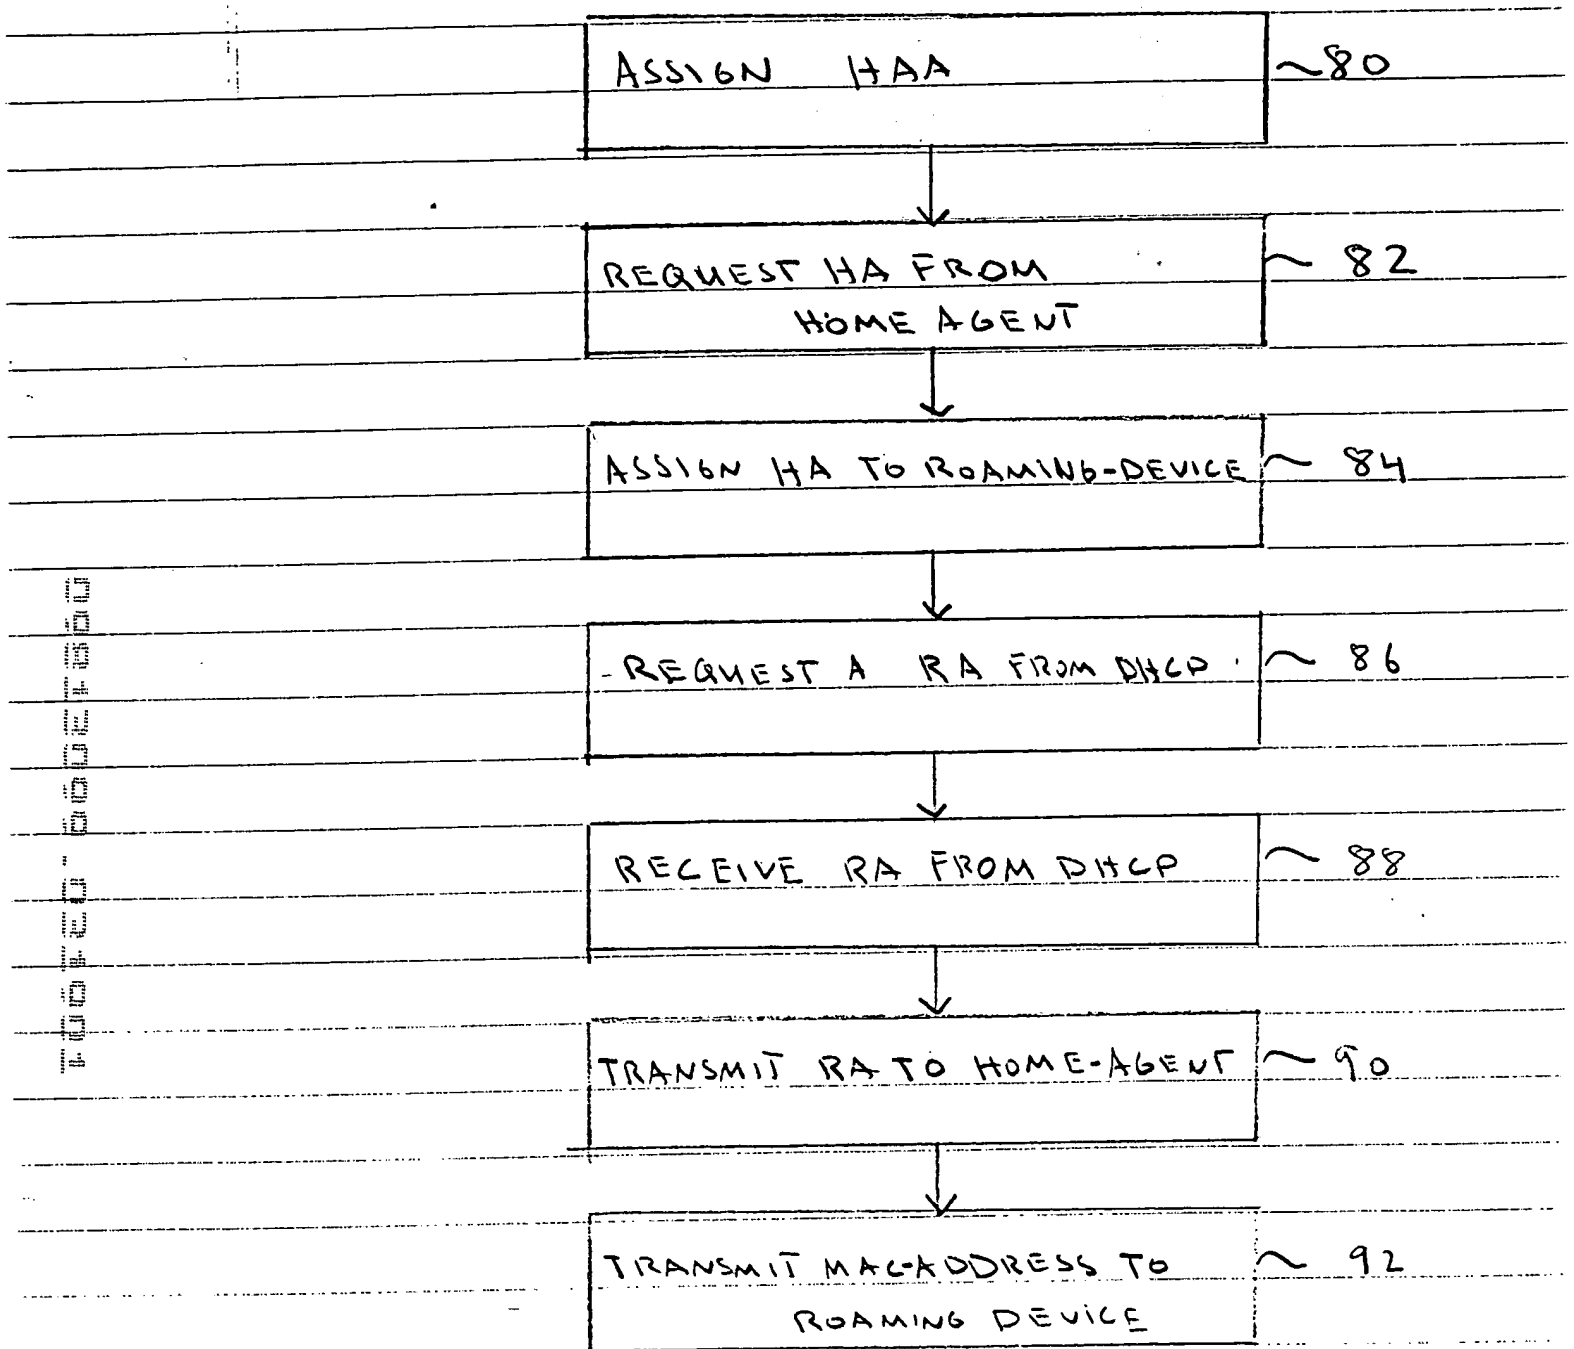 ASSIGN HAA ~80
REQUEST HA FROM ~ 82
HOME AGENT
ASSIGN HA TO ROAMING-DEVICE ~ 84
REQUEST A RA FROM DHCP ~ 86
RECEIVE RA FROM DHCP ~ 88
TRANSMIT RA TO HOME-AGENT ~ 90
TRANSMIT MAC-ADDRESS TO ~ 92
ROAMING DEVICE